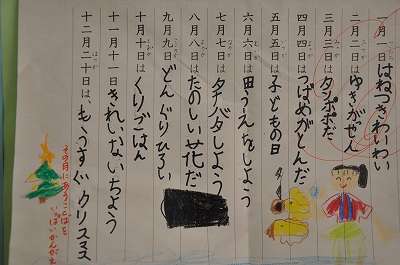 一月一日ははねつきわいわい
二月二日はゆきがっせん
三月三日はタンポポだ
四月四日はつばめがとんだ
五月五日は子どもの日
六月六日は田うえをしよう
七月七日はタナバタしよう
八月八日はたのしい花だ
九月九日はどんぐりひろい
十月十日はくりごはん
十一月十一日はきれいないちょう
十二月二十日は、もうすぐクリスマス
その月にあうことばを
いっぱいかんがえ